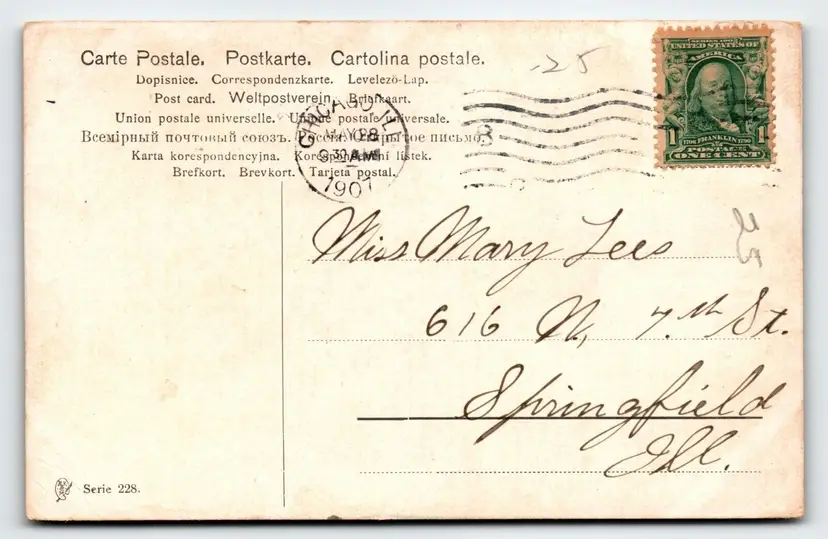 Carte Postale. Postkarte. Cartolina postale.
Dopisnice. Correspondenzkarte. Levelezö-Lap.
Post card. Weltpostverein. Briefkaart.
Union postale universelle. Unione postale universale.
Всемірный почтовый союзъ. Россія. Открытое письмо.
Karta korespondencyjna. Korespondenční lístek.
Brefkort. Brevkort. Tarjeta postal.
CHICAGO, ILL
MAY 28
3 30 AM
1907
3
.25
SERIES 1902
UNITED STATES OF
AMERICA
1 FRANKLIN 1
POSTAGE
ONE CENT
Miss Mary Lees
616 N, 7.th St.
Springfield
Ill.
Serie 228.